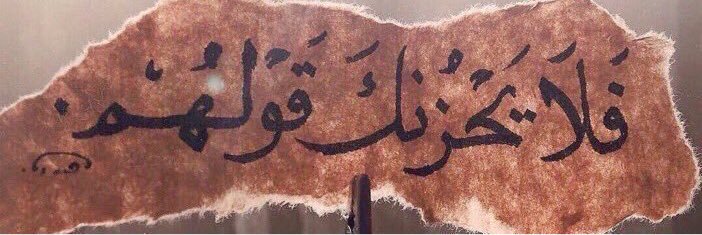 فَلَا يَحْزُنكَ قَوْلُهُمْ.